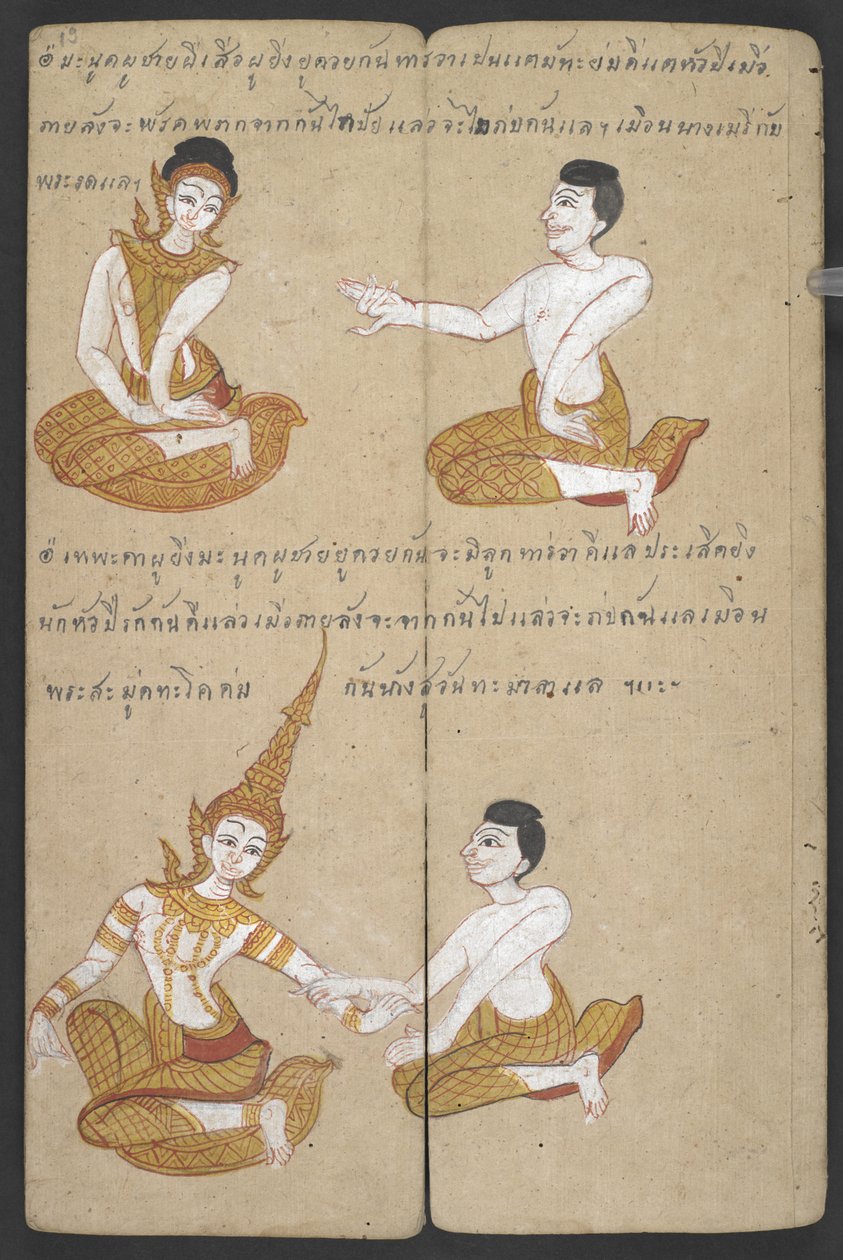 19
๏ มะนูดผูชายผีเสื่อผูยิงยูดวยกันทารวาเปนแตมัทะย่มดีแตหัวปีเมิ่ว
ภายลังจะพัรดพตกจากกันไกปัยแลวจะไดภ่ปกันแลฯ เมือนนางเมรีกับ
พระรดแลฯ
๏ เทพะดาผูยิงมะนูดผูชายยูดวยกันจะมีลูกทาร่วาดีแลประเสีดยิง
นักหัวปีรักกันดีแล่วเมิ่วภายลังจะจากกันไปแล่วจะภ่ปกันแลเมือน
พระสะมู่ดทะโคด่ม กันนางสูวันทะมาลาแล ฯ